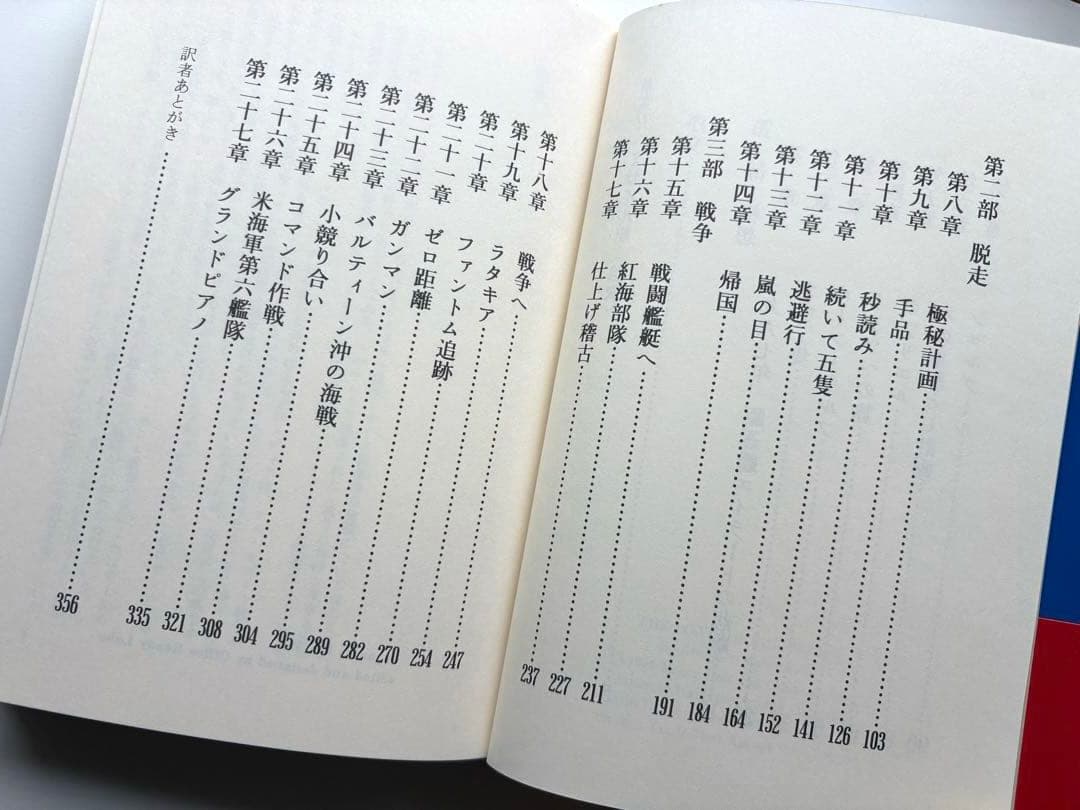 第二部 脱走
第八章 極秘計画……103
第九章 手品……126
第十章 秒読み……141
第十一章 続いて五隻……152
第十二章 逃避行……164
第十三章 嵐の目……184
第十四章 帰国……191
第三部 戦争
第十五章 戦闘艦艇へ……211
第十六章 紅海部隊……227
第十七章 仕上げ稽古……237
第十八章 戦争へ……247
第十九章 ラタキア……254
第二十章 ファントム追跡……270
第二十一章 ゼロ距離……282
第二十二章 ガンマン……289
第二十三章 バルティーン沖の海戦……295
第二十四章 小競り合い……304
第二十五章 コマンド作戦……308
第二十六章 米海軍第六艦隊……321
第二十七章 グランドピアノ……335
訳者あとがき……356